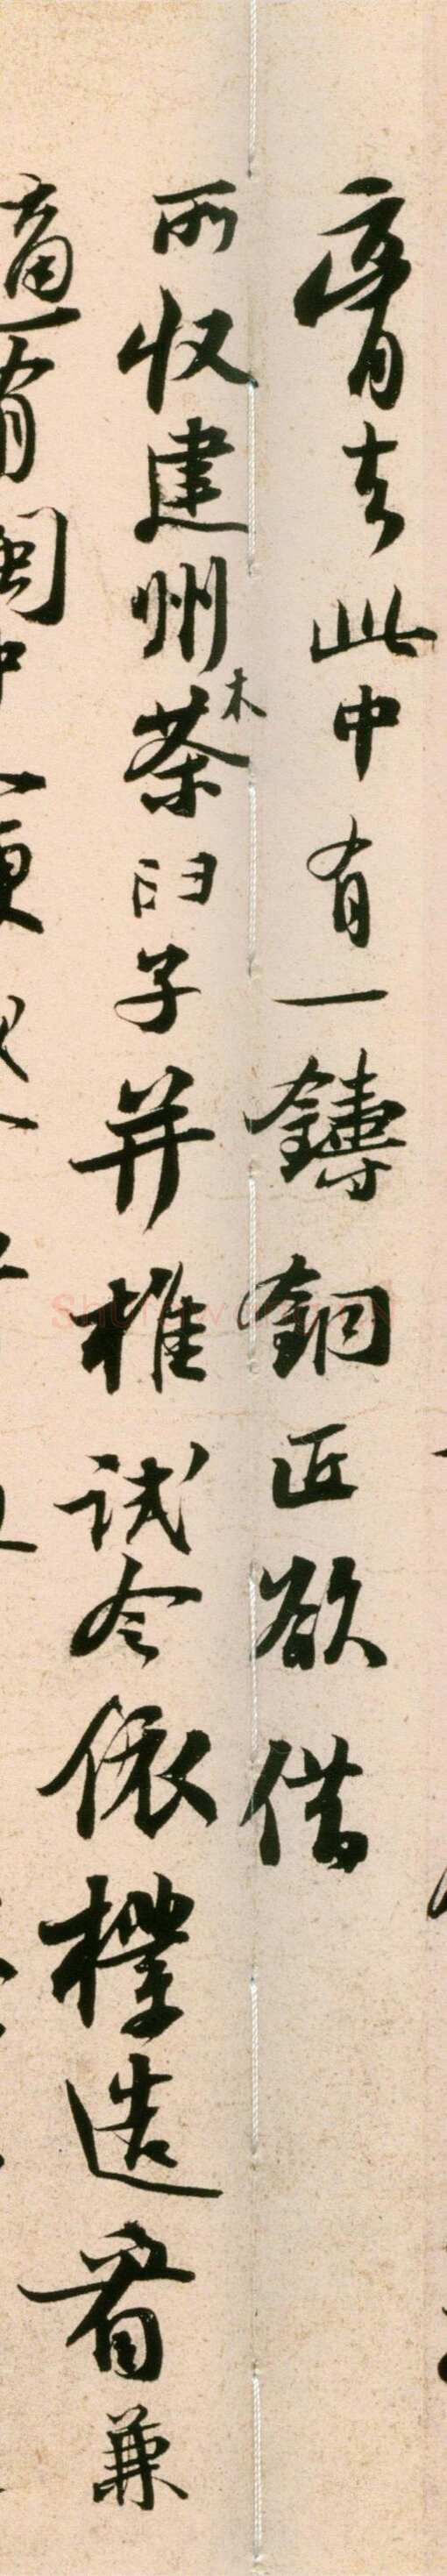 齊去此中有一鑄銅匠欲借
所收建州木茶臼子并椎試令依樣造看兼
適有閩中人便